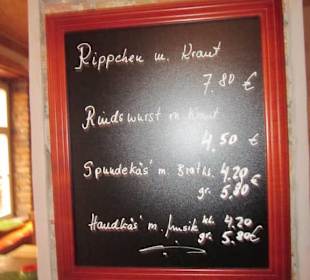 Rippchen m. Kraut
7.80 €
Rindswurst m. Kraut
4.50 €
Spundekäs' m. Brot kl. 4.20 €
gr. 5.80
Handkäs' m. Musik kl. 4.20
gr. 5.80 €